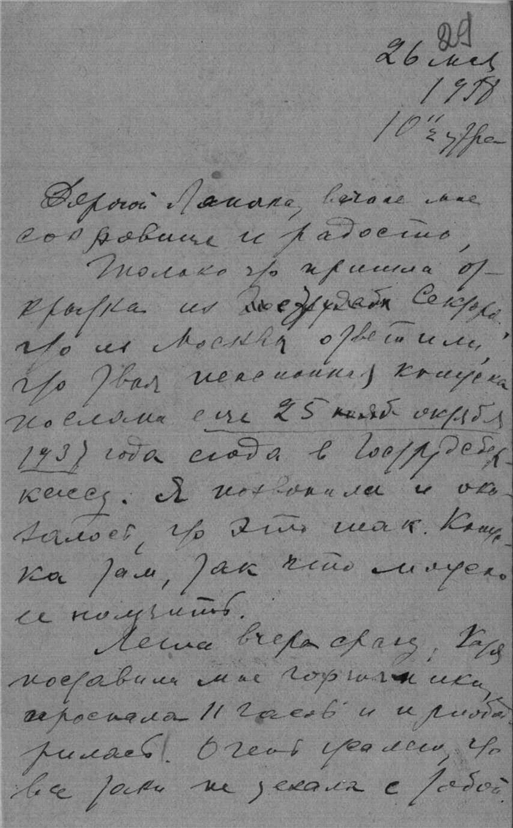 29
26 мая
1938
10 ½ утра
Дорогой Лапочка, вечное мое
сокровище и радость,
Только что пришла от-
крытка из Сектора,
что из Москвы ответили,
что твоя пенсионная книжка
послана еще 25 октября
1937 года сюда в Гострудсбер-
кассу. Я позвонила и ока-
залось, что это так. Книж-
ка там, так что можно
ее получить.
Легла вчера сразу, Катя
поставила мне горчичники,
проспала 11 часов и приобо-
дрилась. Очень жалею, что
все таки не уехала с тобой.